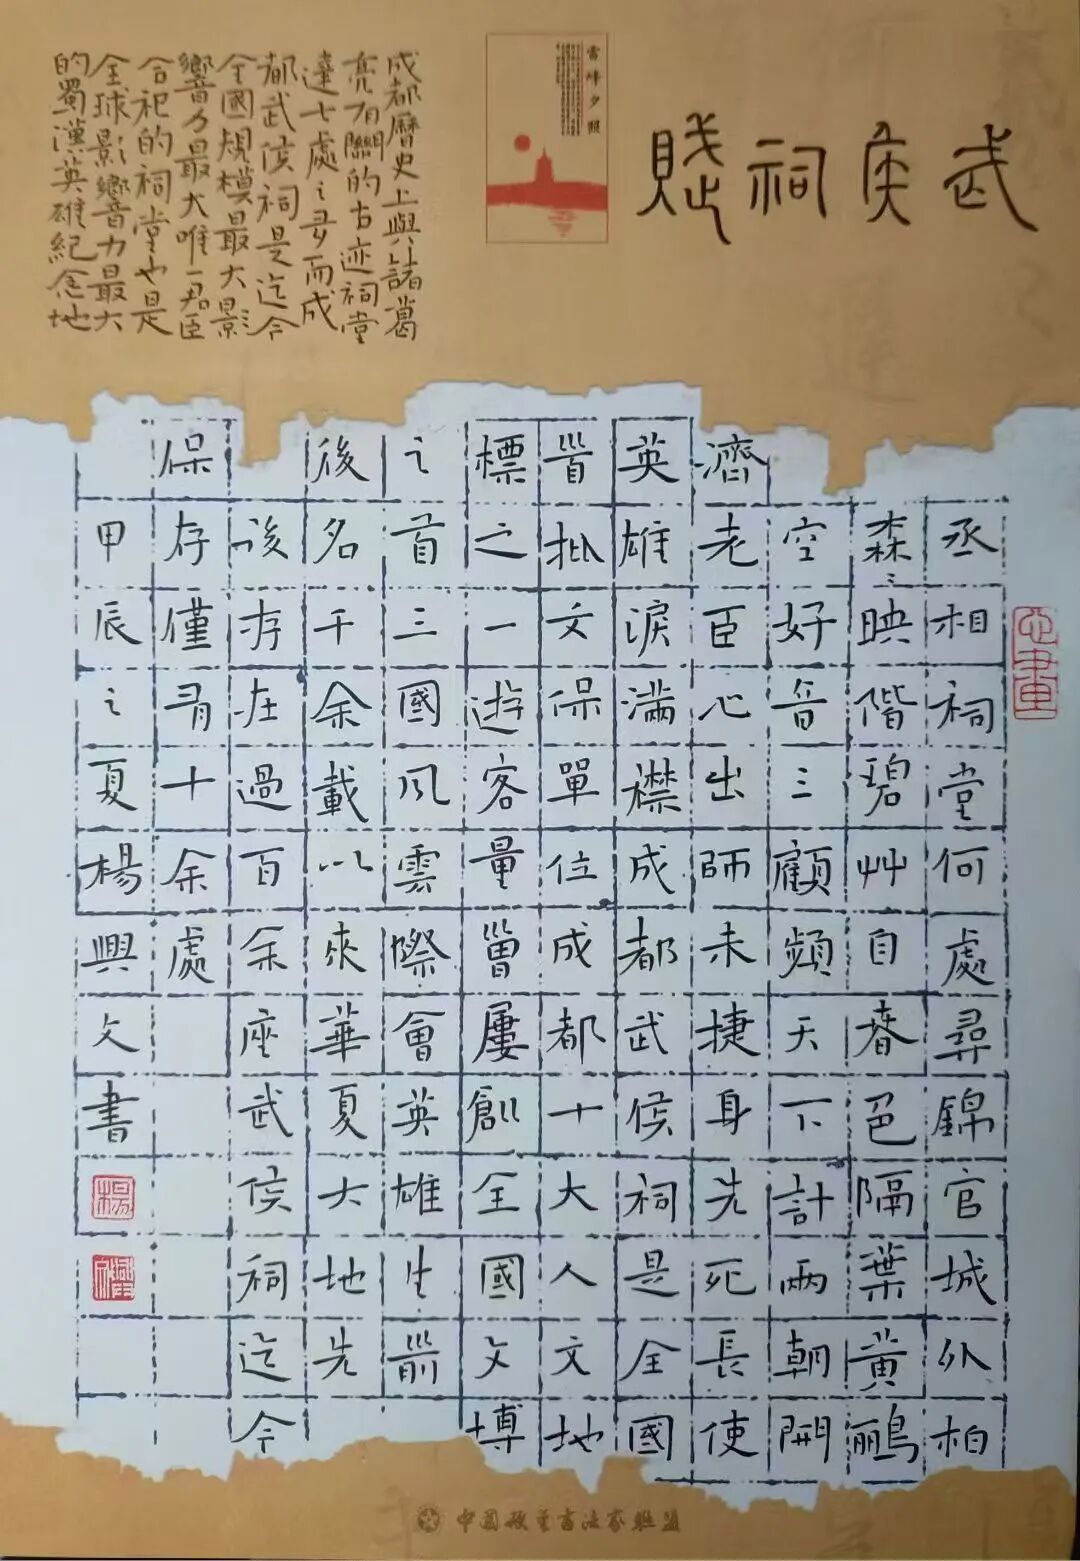 武侯祠賦
雷峰夕照
成都曆史上與諸葛
亮有關的古迹祠堂
達七處之多而成
都武侯祠是迄今
全國規模最大影
響力最大唯一君臣
合祀的祠堂也是
全球影響力最大
的蜀漢英雄紀念地
丞相祠堂何處尋錦官城外柏
森〻映階碧艸自春色隔葉黄鸝
空好音三顧頻天下計兩朝開
濟老臣心出師未捷身先死長使
英雄淚滿襟成都武侯祠是全國
首批文保單位成都十大人文地
標之一遊客量曾屢創全國文博
之首三國風雲際會英雄生前
後名千余載以來華夏大地先
後存在過百余座武侯祠迄今
保存僅有十余處
甲辰之夏楊興文書
心畫
楊
中国硬笔书法家联盟